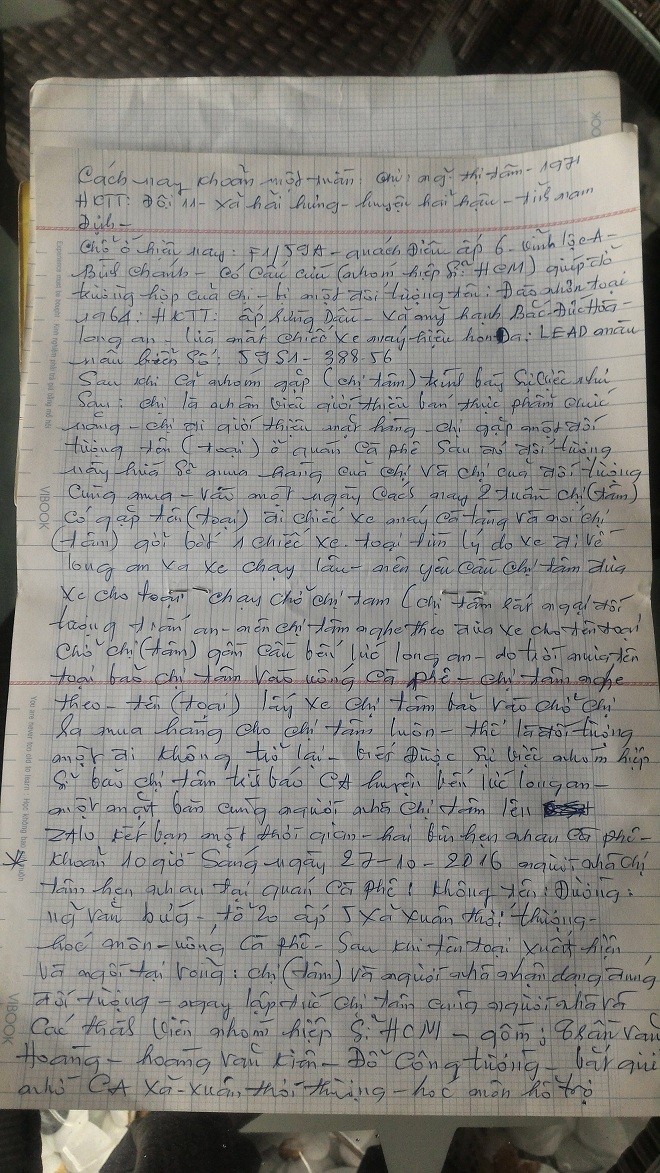 Cách nay khoản một tuần: chị: ng~. thị tâm - 1971
HKTT: Đội 11 - xã hải hưng - huyện hải hậu - tỉnh nam
Định -
chỗ ở hiện nay: F1/59A - quách Điêu ấp 6 - vĩnh lộc A -
Bình chánh - có cầu cứu (nhóm hiệp sĩ HCM) giúp đỡ
trường hợp của chị - bị một đối tượng tên: Đào nhơn toại
1964: HKTT: ấp hưng Dầu - xã mỹ hạnh Bắc Đức Hòa -
long an - lừa mất chiếc xe máy hiệu honDa: LEAD màu
nâu biển số: 59S1 - 388.56
Sau khi cả nhóm gặp (chị tâm) trình bày sự việc như
sau: chị là nhân viên giới thiệu bán thực phẩm chức
năng - chị đi giới thiệu mặt hàng - chị gặp một đối
tượng tên (toại) ở quán cà phê sau đó đối tượng
này hứa sẽ mua hàng của chị và chị của đối tượng
cũng mua - vào một ngày cách nay 2 tuần chị (tâm)
có gặp tên (toại) đi chiếc xe máy cà tàng và nói chị
(tâm) gởi bớt 1 chiếc xe. toại tìm lý do xe đi về
long an xa xe chạy lâu - nên yêu cầu chị tâm đưa
xe cho toại chạy chở chị tâm (chị tâm rất ngại đối
tượng trấn an - nên chị tâm nghe theo đưa xe cho tên toại
chở chị (tâm) gần cầu bến lức long an - do trời mưa tên
toại bảo chị tâm vào uống cà phê - chị tâm nghe
theo - tên (toại) lấy xe chị tâm bảo vào chở chị
ra mua hàng cho chị tâm luôn - thế là đối tượng
một đi không trở lại - biết được sự việc nhóm hiệp
sĩ bảo chị tâm trình báo CA huyện bến lức long an -
một mặt bàn cùng người nhà chị tâm lên
zalo kết bạn một thời gian - hai bên hẹn nhau cà phê -
* khoản 10 giờ sáng ngày 27 - 10 - 2016 người nhà chị
tâm hẹn nhau tại quán cà phê: không tên: Đường:
ng~ văn bứa - tổ 20 ấp 5 xã xuân thới thượng -
hóc môn - uống cà phê - sau khi tên toại xuất hiện
và ngồi tại vong: chị (tâm) và người nhà nhận dạng đúng
đối tượng - ngay lập tức chị tâm cùng người nhà và
các thành viên nhóm hiệp sĩ HCM - gồm: trần văn
Hoàng - hoàng văn kiên - Đỗ công tường - bắt giử
nhờ CA xã - xuân thới thượng - hóc môn hỗ trợ
VIBOOK
You are never too old to learn
VIBOOK